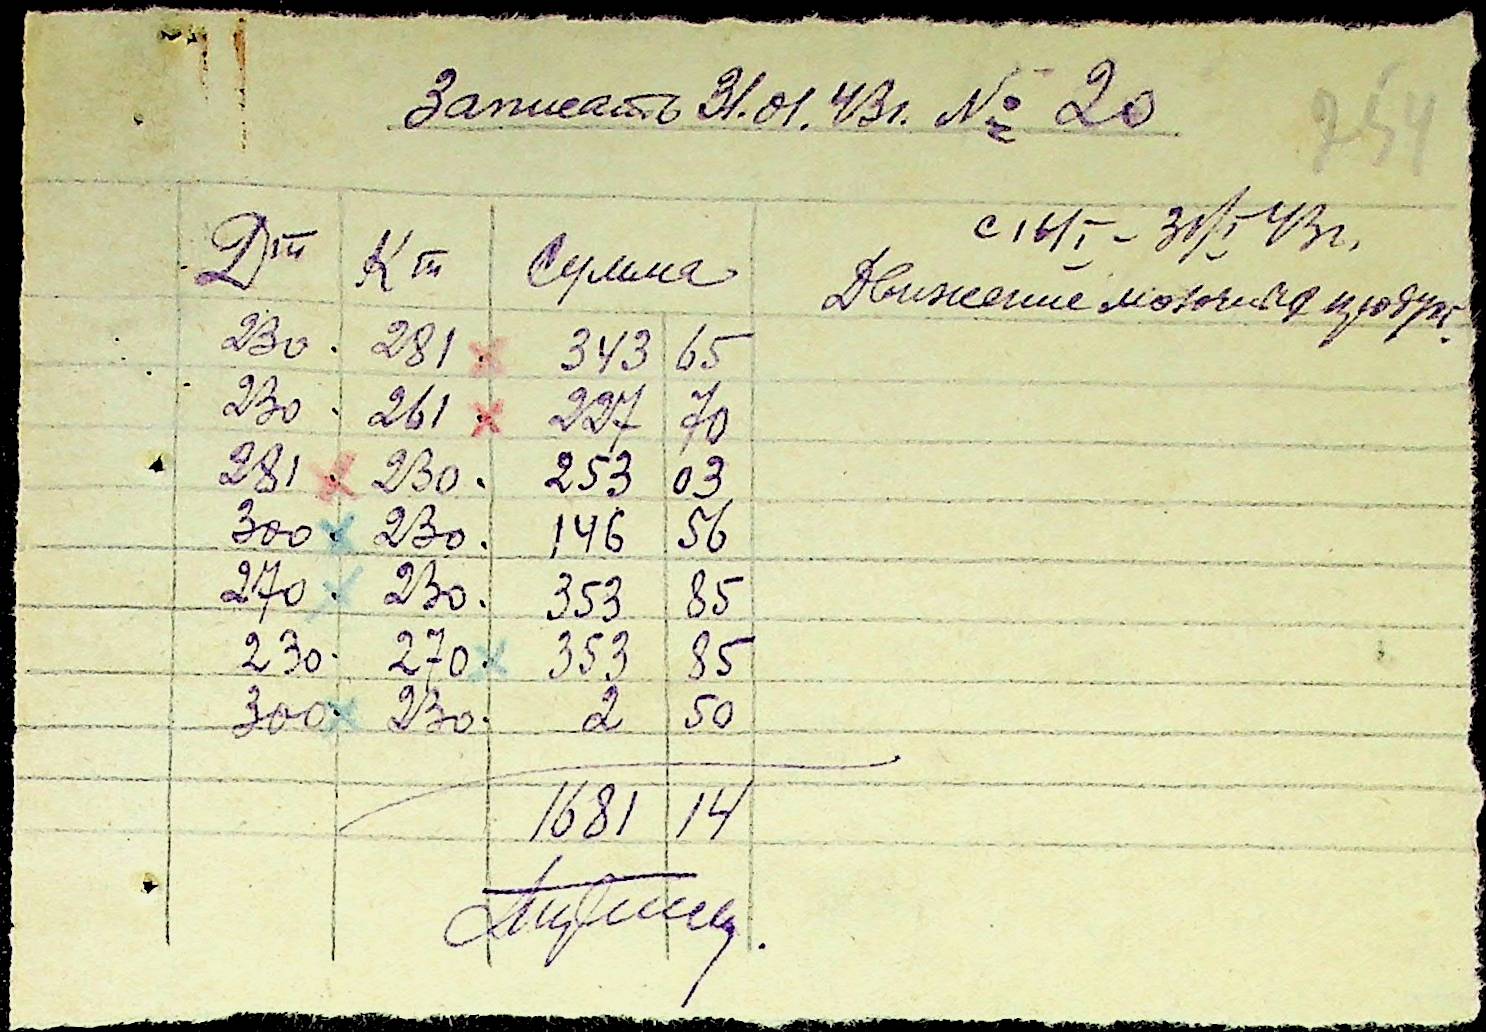 Записать 31.01.43г. № 20
254
с 16/I - 31/I 43г.
Движение молочных продук.
Дт Кт Сумма
230. 281. 343 65
230. 261. 227 70
281. 230. 253 03
300. 230. 146 56
270. 230. 353 85
230. 270. 353 85
300. 230. 2 50
1681 14